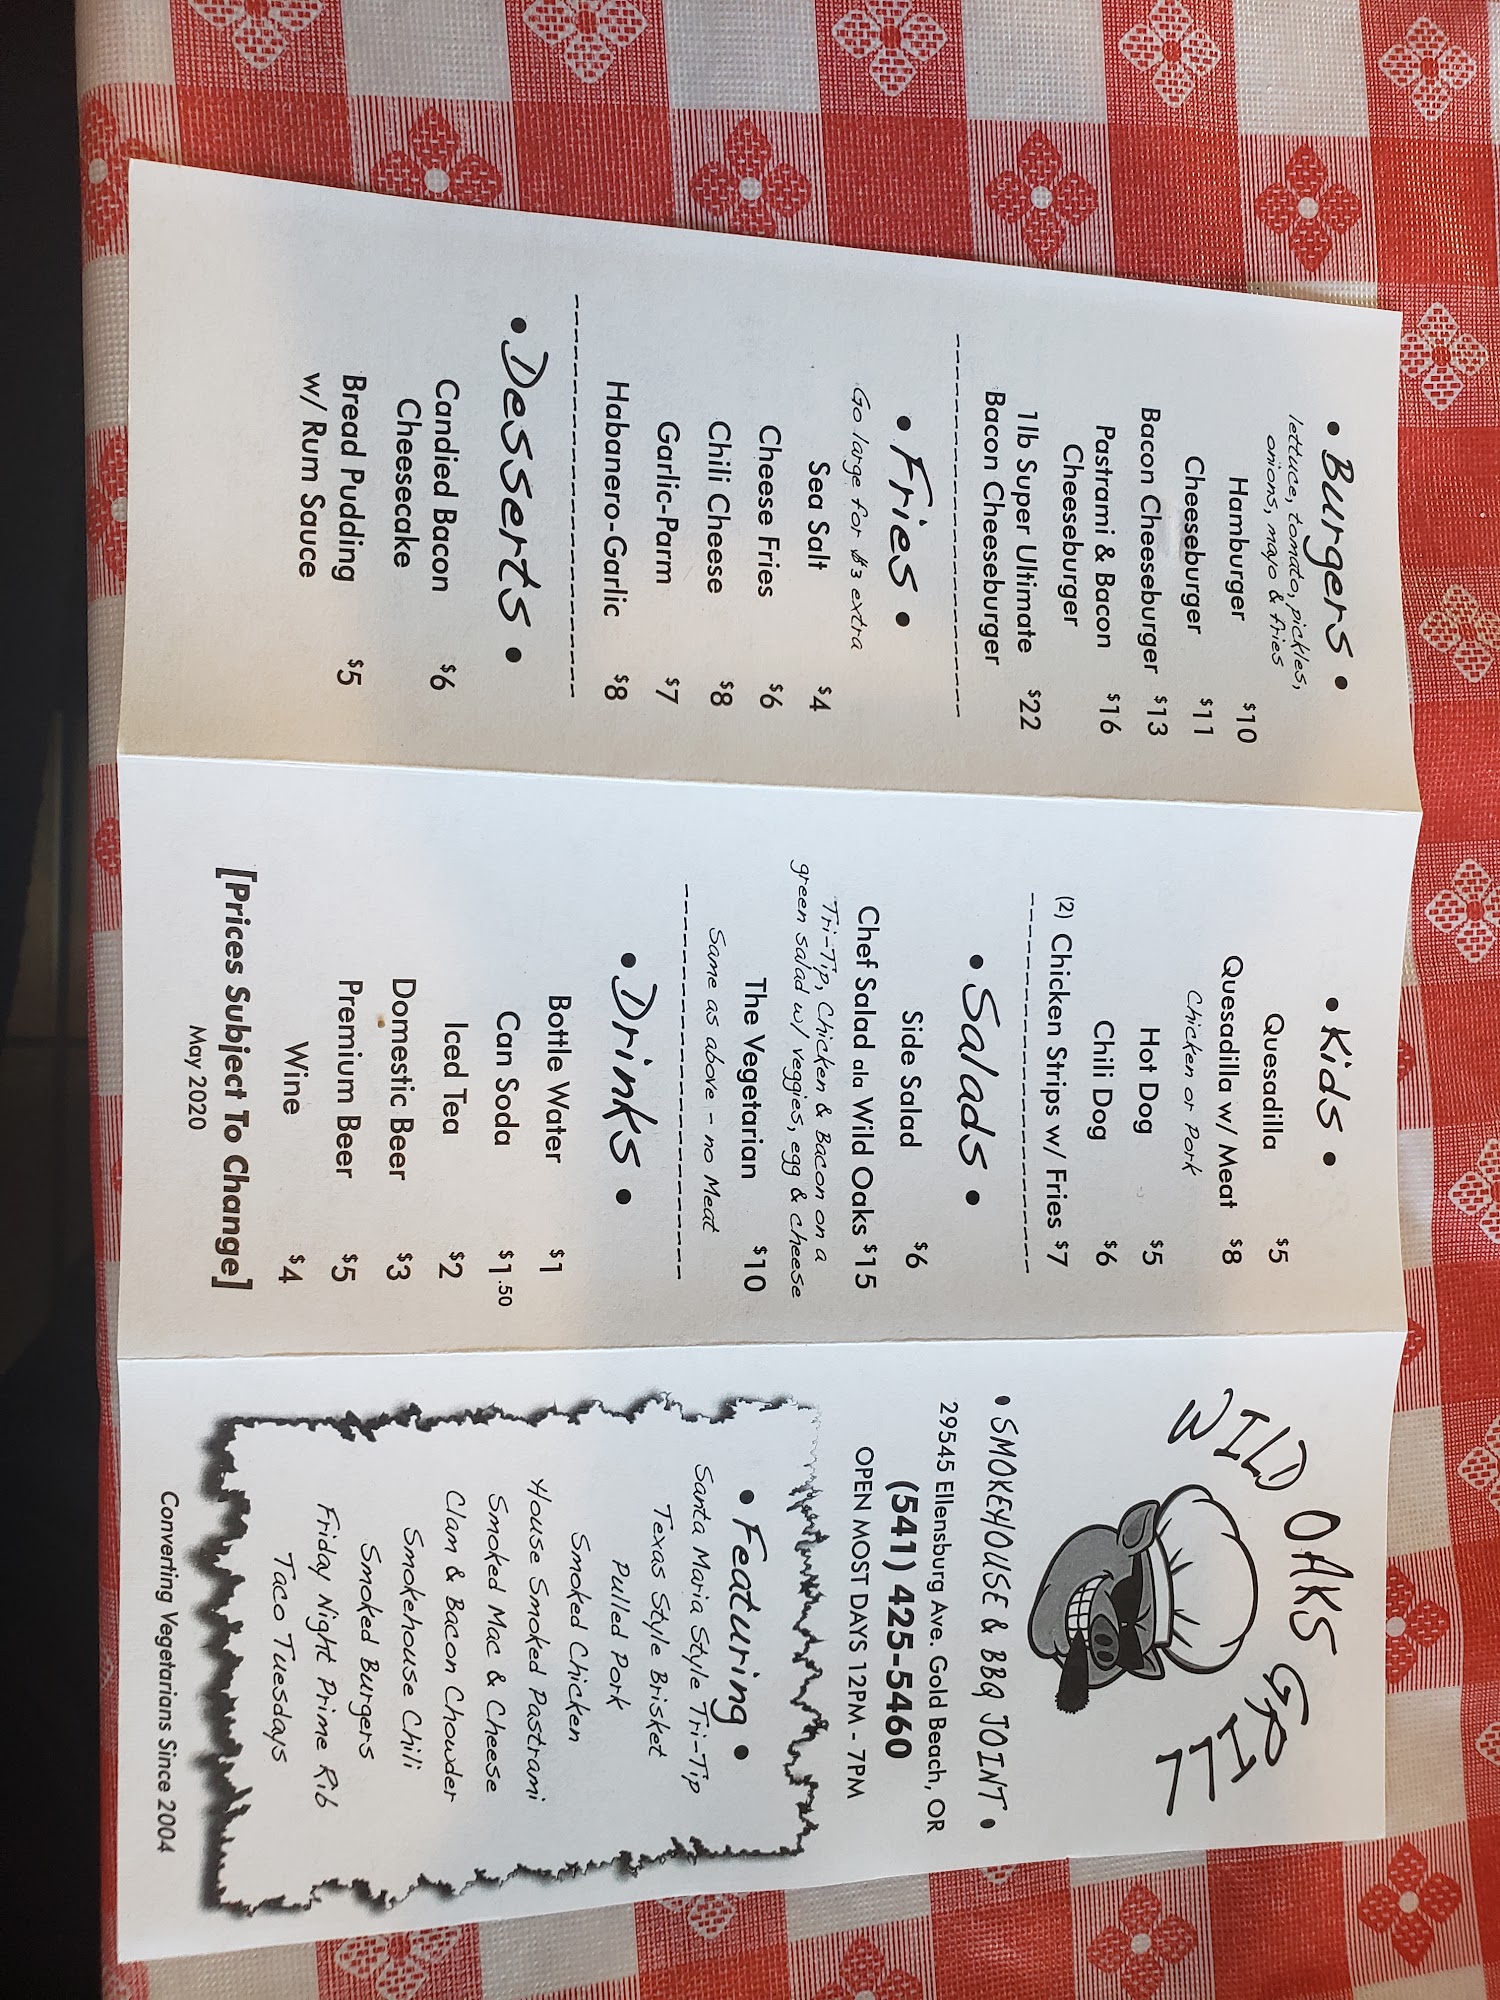 • Burgers •
lettuce, tomato, pickles,
onions, mayo & fries
Hamburger $10
Cheeseburger $11
Bacon Cheeseburger $13
Pastrami & Bacon
Cheeseburger $16
1lb Super Ultimate
Bacon Cheeseburger $22
• Fries •
Go large for $3 extra
Sea Salt $4
Cheese Fries $6
Chili Cheese $8
Garlic-Parm $7
Habanero-Garlic $8
• Desserts •
Candied Bacon
Cheesecake $6
Bread Pudding
w/ Rum Sauce $5
• Kids •
Quesadilla $5
Quesadilla w/ Meat $8
Chicken or Pork
Hot Dog $5
Chili Dog $6
(2) Chicken Strips w/ Fries $7
• Salads •
Side Salad $6
Chef Salad ala Wild Oaks $15
Tri-Tip, Chicken & Bacon on a
green salad w/ veggies, egg & cheese
The Vegetarian $10
Same as above - no Meat
• Drinks •
Bottle Water $1
Can Soda $1.50
Iced Tea $2
Domestic Beer $3
Premium Beer $5
Wine $4
[Prices Subject To Change]
May 2020
WILD OAKS GRILL
• SMOKEHOUSE & BBQ JOINT •
29545 Ellensburg Ave. Gold Beach, OR
(541) 425-5460
OPEN MOST DAYS 12PM - 7PM
• Featuring •
Santa Maria Style Tri-Tip
Texas Style Brisket
Pulled Pork
Smoked Chicken
House Smoked Pastrami
Smoked Mac & Cheese
Clan & Bacon Chowder
Smokehouse Chili
Smoked Burgers
Friday Night Prime Rib
Taco Tuesdays
Converting Vegetarians Since 2004